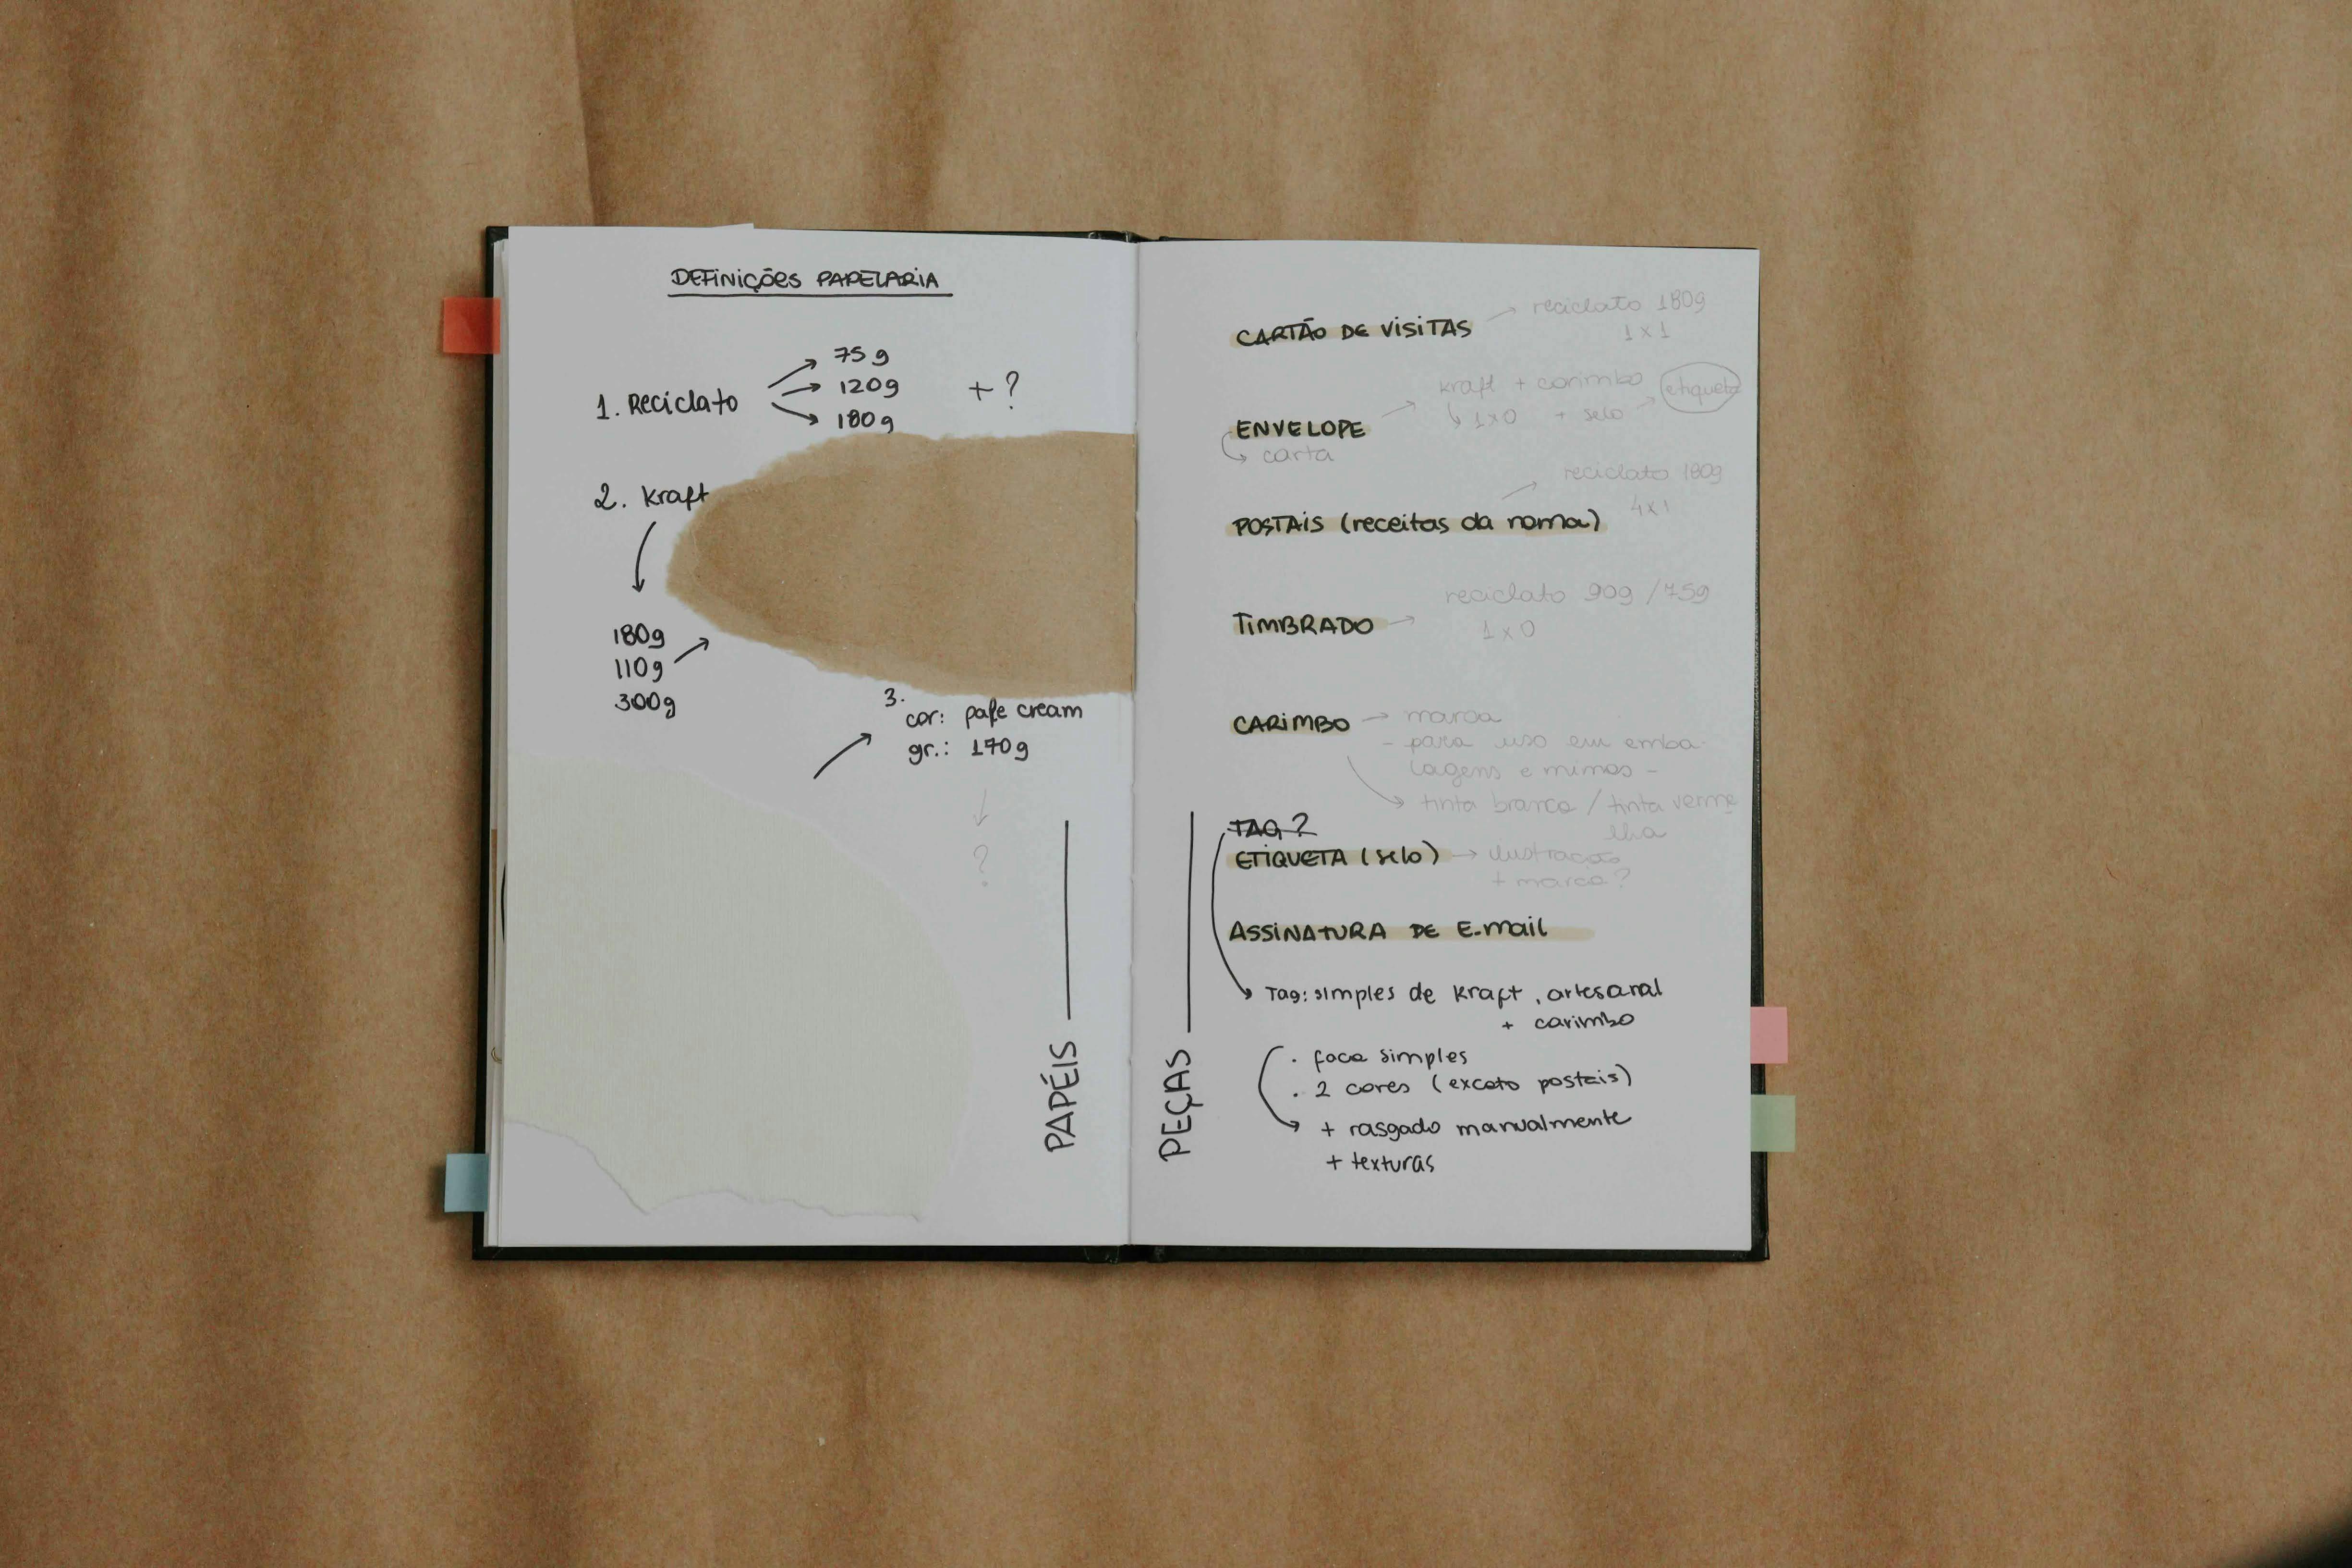 DEFINIÇÕES PAPELARIA
1. Reciclato
75g
120g
180g
+ ?
2. Kraft
180g
110g
300g
3.
cor: pale cream
gr.: 170g
?
PAPÉIS
PEÇAS
CARTÃO DE VISITAS
reciclato 180g
1x1
ENVELOPE
kraft + carimbo
1x0 + selo
etiqueta
carta
POSTAIS (receitas da noma)
reciclato 180g
4x1
TIMBRADO
reciclato 90g / 75g
1x0
CARIMBO
marca
- para uso em emba-
lagens e mimos -
tinta branca / tinta verme
lha
TAG?
ETIQUETA (selo)
ilustração
+ marca?
ASSINATURA DE E-mail
Tag: simples de Kraft, artesanal
+ carimbo
. faca simples
. 2 cores (exceto postais)
+ rasgado manualmente
+ texturas